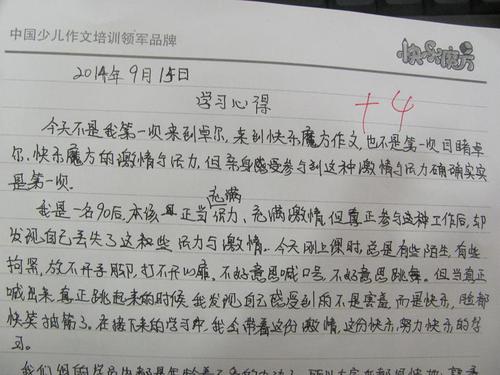 中国少儿作文培训领军品牌
快乐魔方
2014年9月15日
学习心得
+4
今天不是我第一次来到卓尔，来到快乐魔方作文，也不是第一次目睹卓
尔，快乐魔方的激情与活力，但亲身感受参与到这种激情与活力确确实实
是第一次。
充满
我是一名90后，本该是正当活力、充满激情，但真正参与这种工作后，却
发现自己丢失了这种些活力与激情。今天刚上课时，总是有些陌生，有些
拘紧，放不开手脚，打不开心扉。不好意思喊口号，不好意思跳舞。但当真正
喊出来，真正跳起来的时候，我发现自己感受到的不是害羞，而是快乐，脸都
快笑抽筋了。在接下来的学习中，我会带着这份激情，这份快乐，努力快乐的学
习。